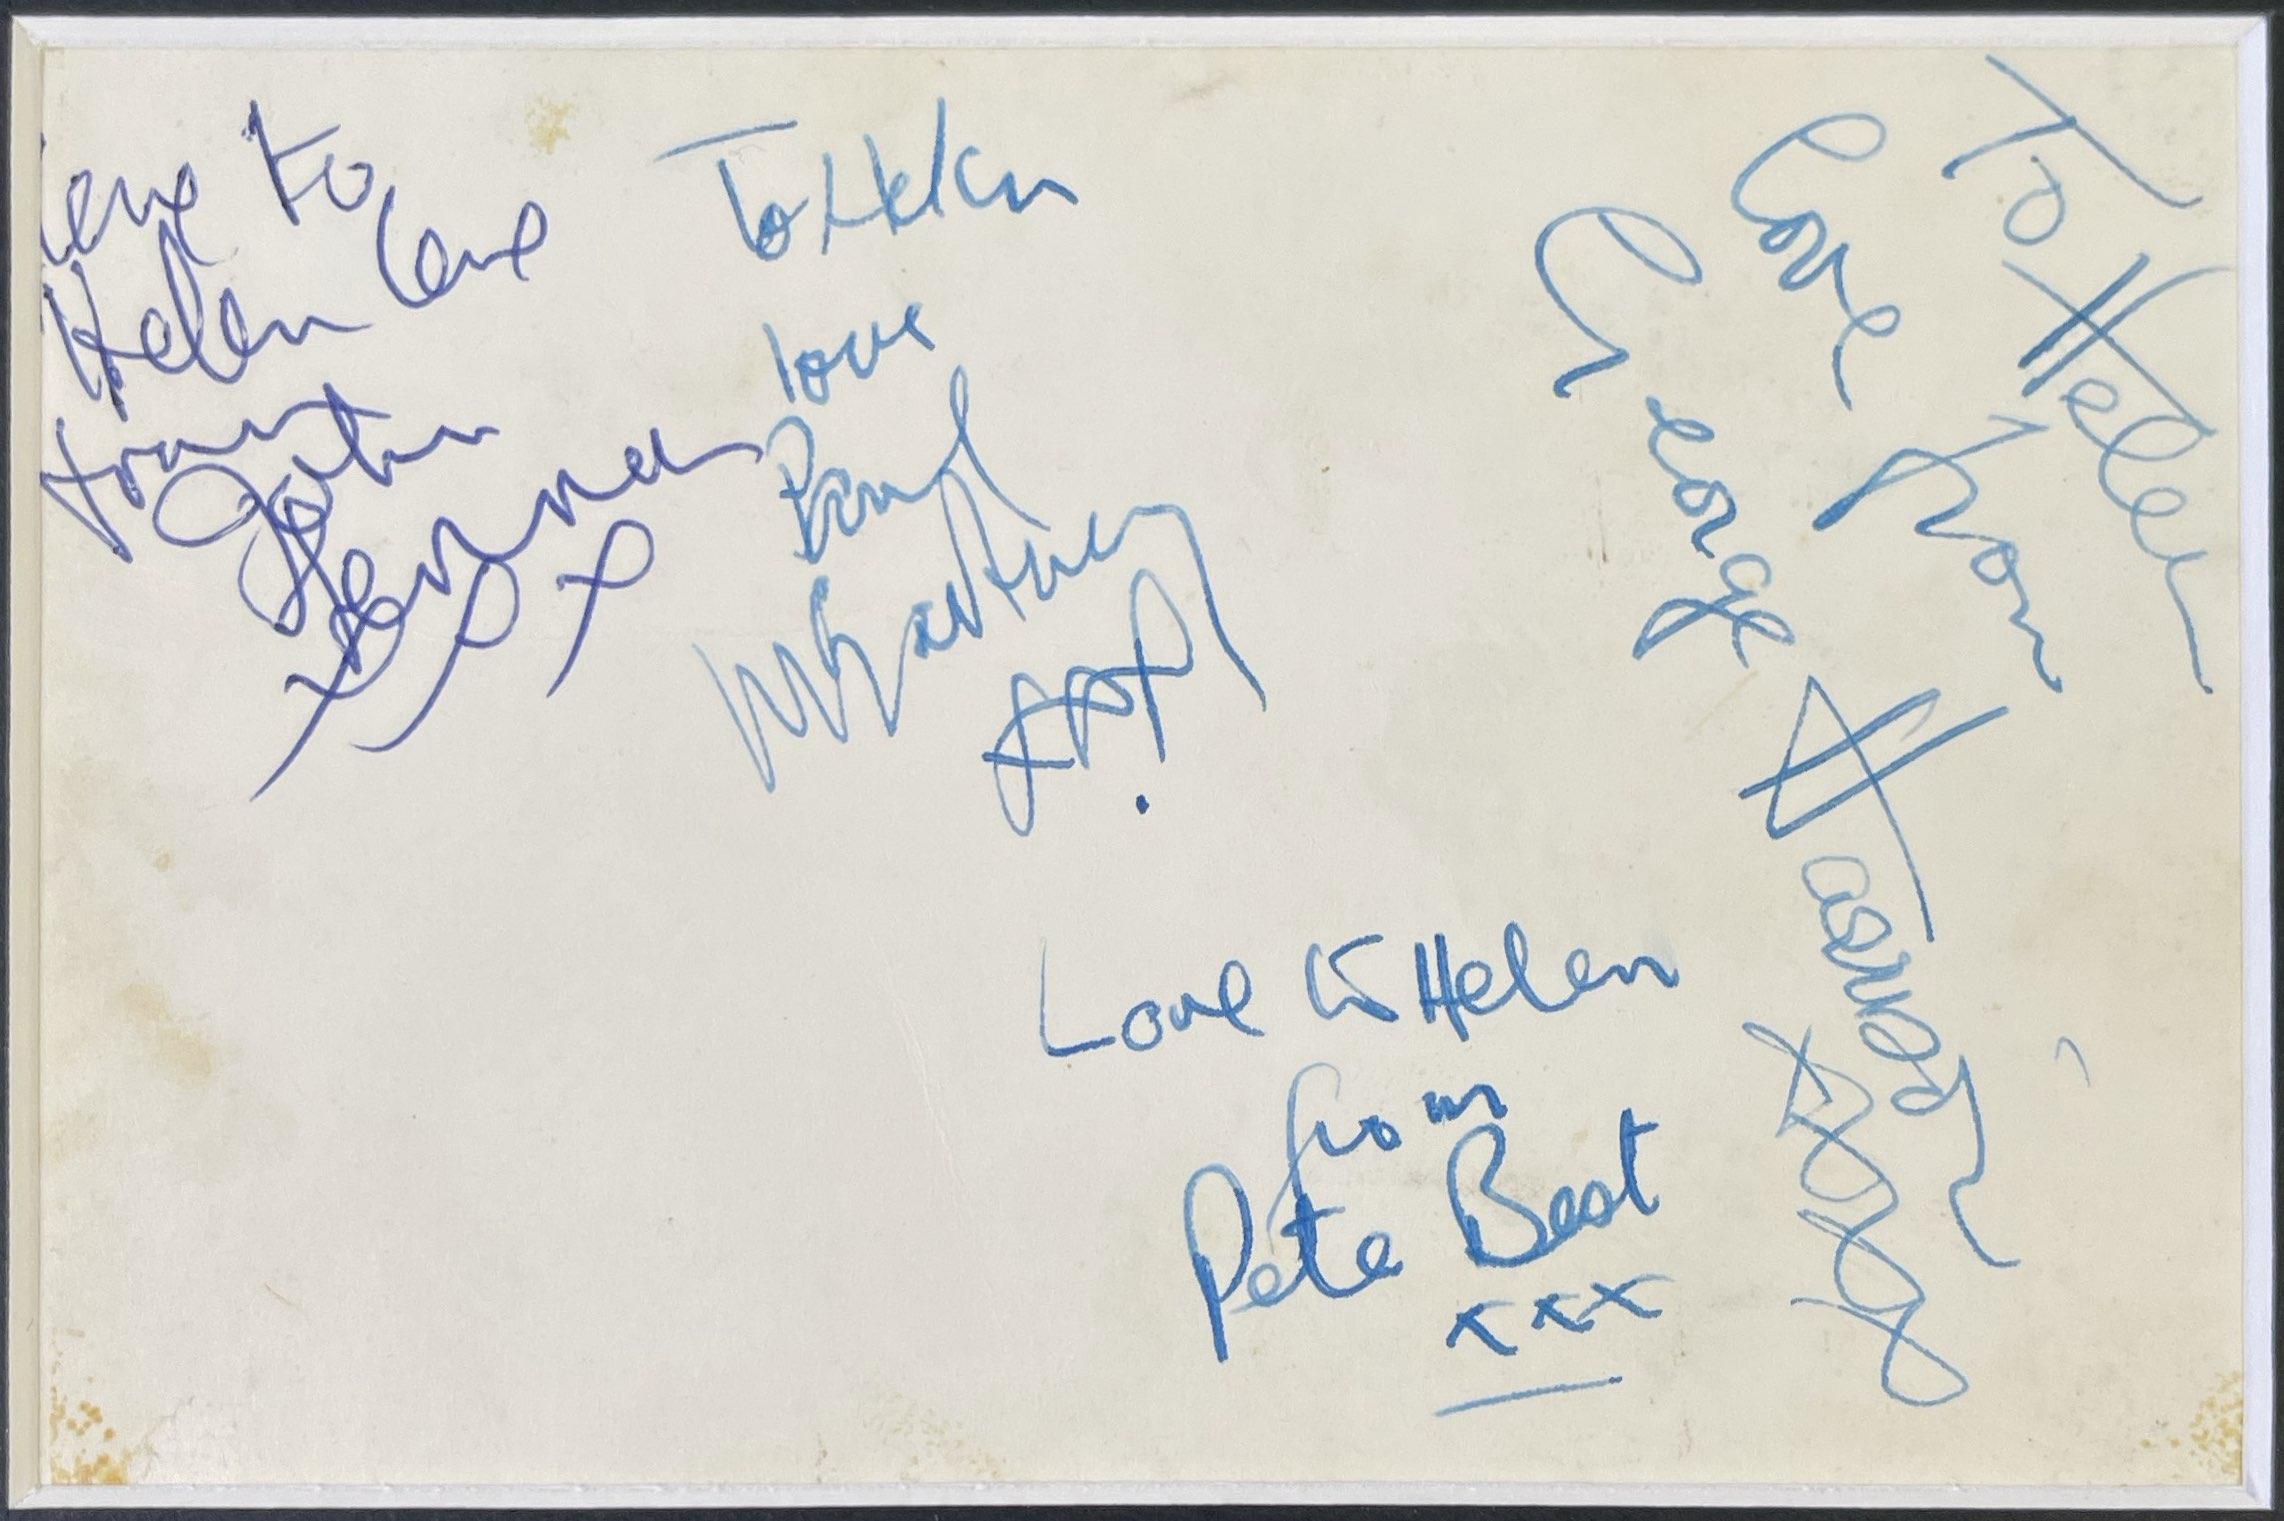 love to
Helen love
from
John
Lennon
xxx
To Helen
love
Paul
McCartney
xxx!
To Helen
Love from
George
Harrison
xxx
Love to Helen
from
Pete Best
xxx